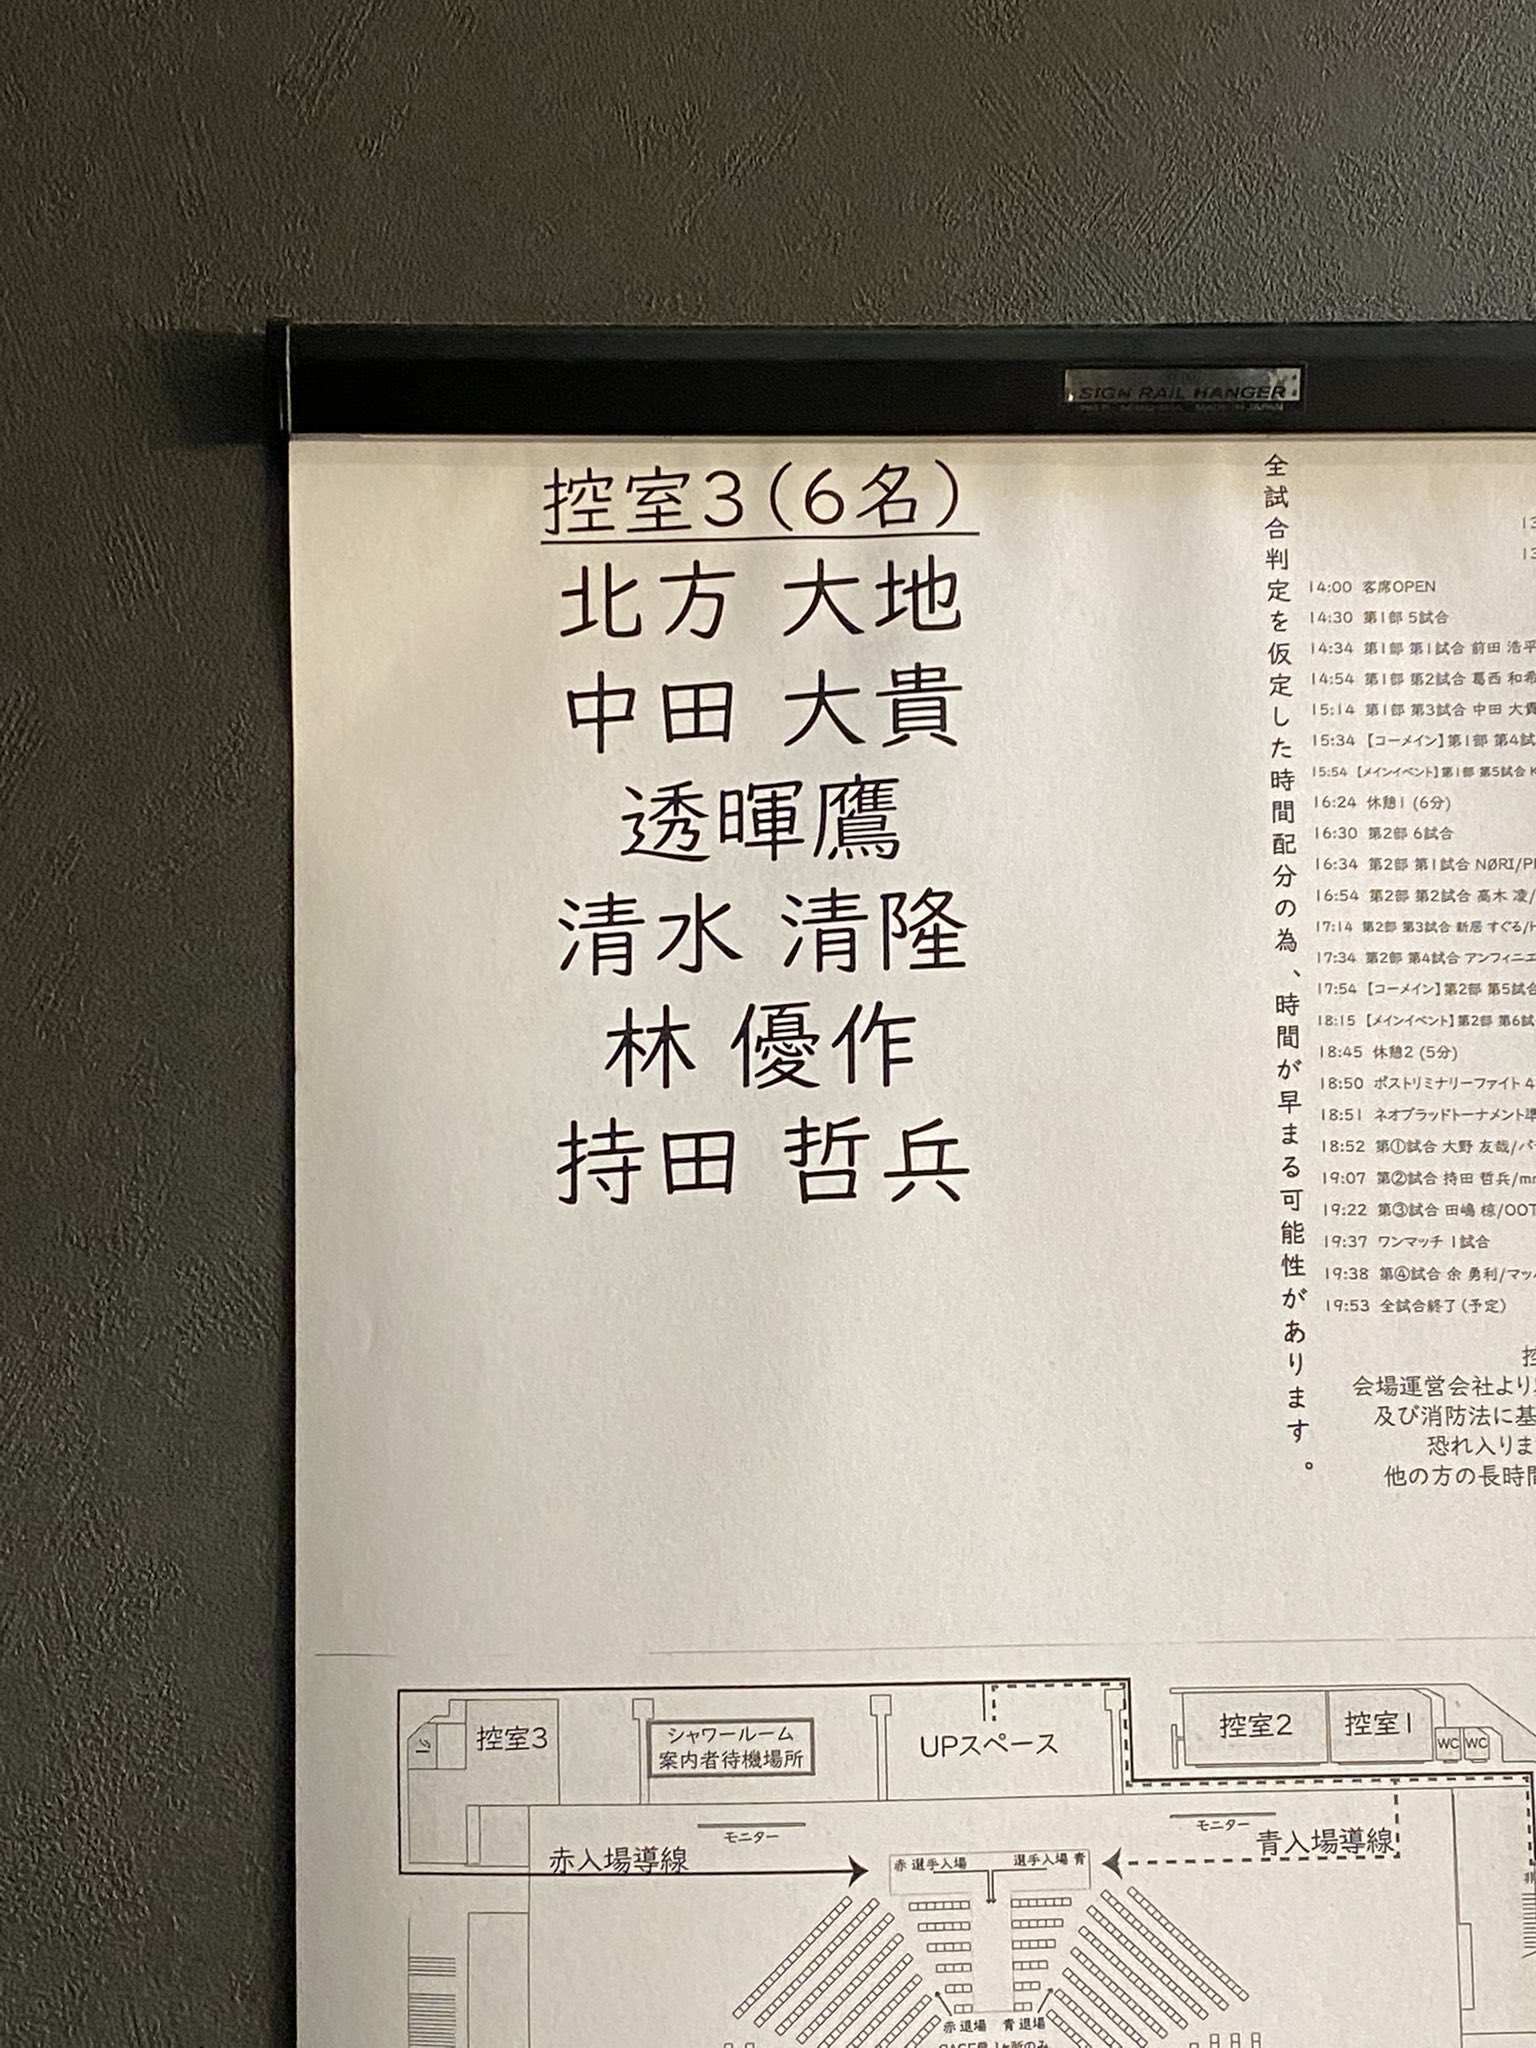 SIGN RAIL HANGER
控室3(6名)
北方 大地
中田 大貴
透暉鷹
清水 清隆
林 優作
持田 哲兵
全試合判定を仮定した時間配分の為、時間が早まる可能性があります。
13
13
14:00 客席OPEN
14:30 第1部 5試合
14:34 第1部 第1試合 前田 浩平
14:54 第1部 第2試合 葛西 和希
15:14 第1部 第3試合 中田 大貴
15:34 【コーメイン】第1部 第4試
15:54 【メインイベント】第1部 第5試合 K
16:24 休憩1 (6分)
16:30 第2部 6試合
16:34 第2部 第1試合 NØRI/P
16:54 第2部 第2試合 高木 凌/
17:14 第2部 第3試合 新居 すぐる/
17:34 第2部 第4試合 アンフィニエ
17:54 【コーメイン】第2部 第5試合
18:15 【メインイベント】第2部 第6試
18:45 休憩2 (5分)
18:50 ポストリミナリーファイト 4
18:51 ネオブラッドトーナメント準
18:52 第①試合 大野 友哉/パ
19:07 第②試合 持田 哲兵/mr
19:22 第③試合 田嶋 椋/OOT
19:37 ワンマッチ 1試合
19:38 第④試合 余 勇利/マッ
19:53 全試合終了(予定)
控
会場運営会社より
及び消防法に基
恐れ入りま
他の方の長時間
控室3
シャワールーム
案内者待機場所
UPスペース
控室2
控室1
WC
WC
モニター
モニター
赤入場導線
青入場導線
赤 選手入場
選手入場 青
赤 退場
青 退場